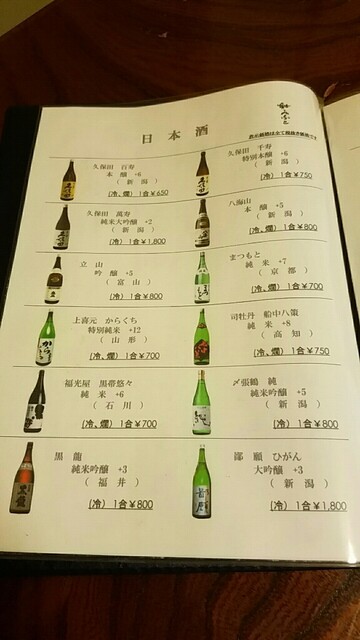 日本酒
表示価格は全て税抜き価格です
久保田 百寿
本 醸 +6
( 新 潟 )
(冷、燗) 1合¥650
久保田 千寿
特別本醸 +6
( 新 潟 )
(冷、燗) 1合¥750
久保田 萬寿
純米大吟醸 +2
( 新 潟 )
(冷) 1合¥1,800
八海山
本 醸 +5
( 新 潟 )
(冷、燗) 1合¥800
立 山
吟 醸 +5
( 富 山 )
(冷、燗) 1合¥800
まつもと
純 米 +7
( 京 都 )
(冷、燗) 1合¥700
上喜元 からくち
特別純米 +12
( 山 形 )
(冷、燗) 1合¥700
司牡丹 船中八策
純 米 +8
( 高 知 )
(冷、燗) 1合¥750
福光屋 黒帯悠々
純 米 +6
( 石 川 )
(冷、燗) 1合¥700
〆張鶴 純
純米吟醸 +5
( 新 潟 )
(冷) 1合¥800
黒 龍
純米吟醸 +3
( 福 井 )
(冷) 1合¥800
鄙 願 ひがん
大吟醸 +3
( 新 潟 )
(冷) 1合¥1,800